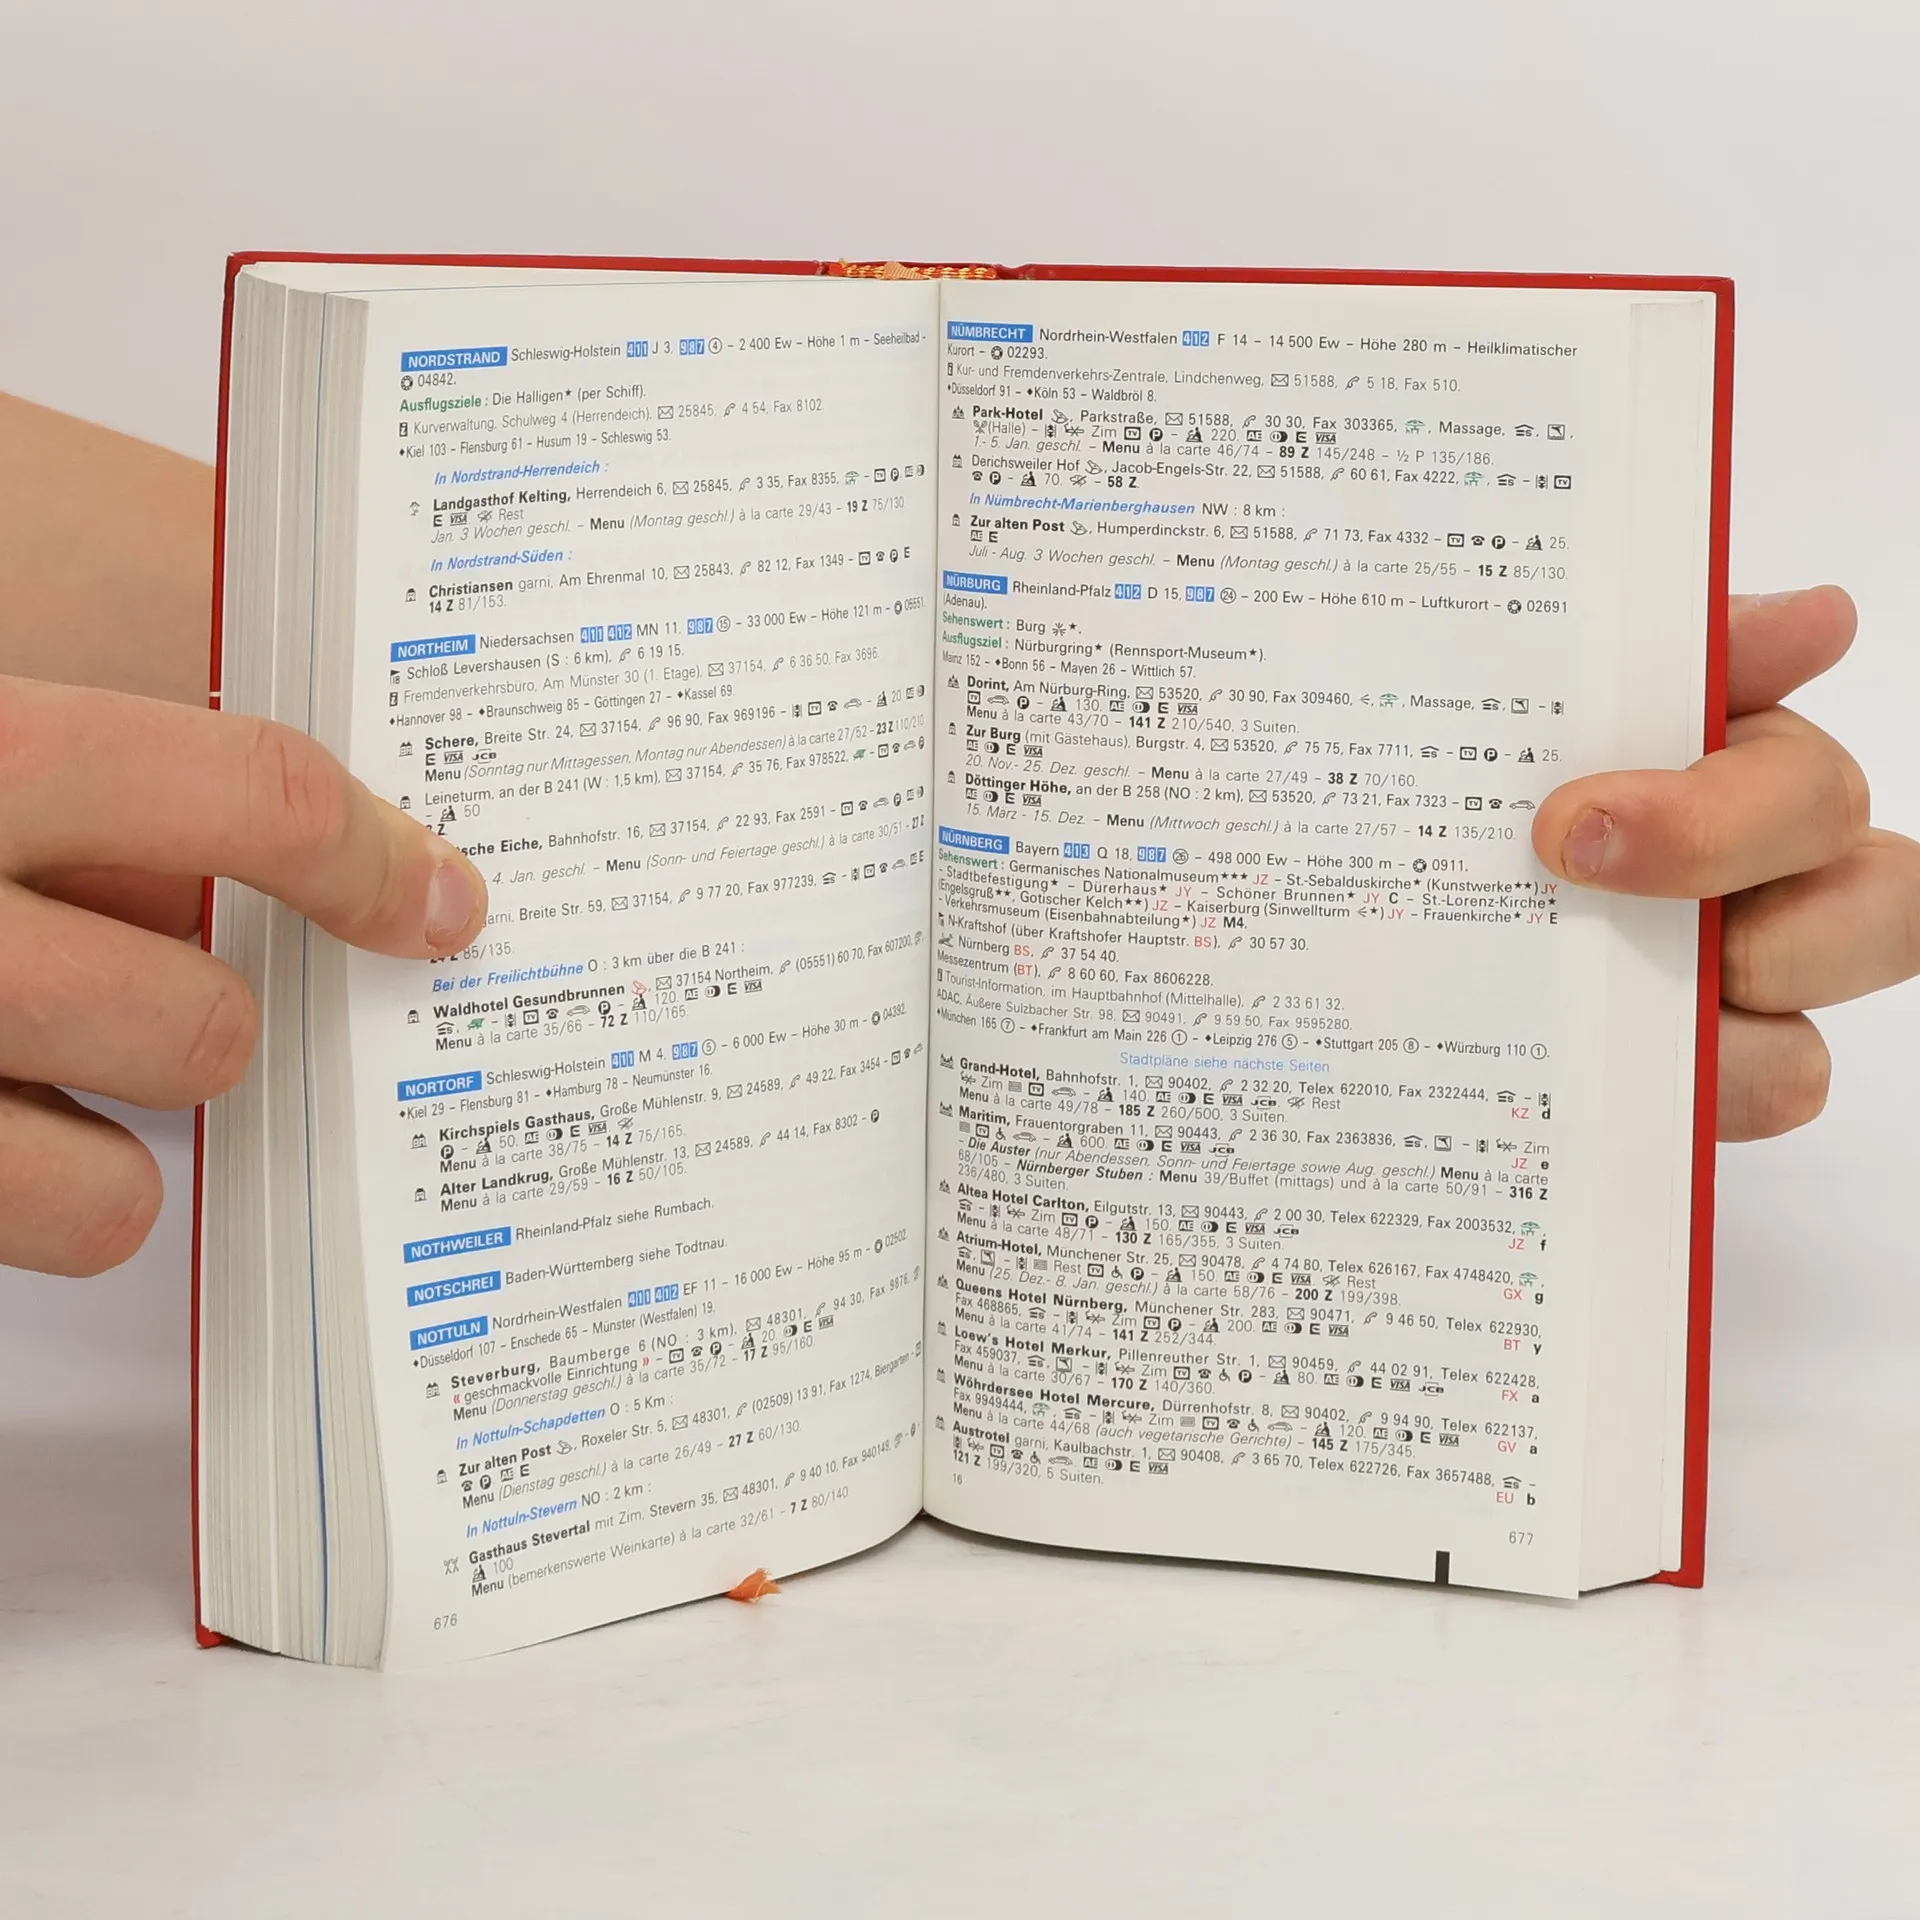 NORDSTRAND Schleswig-Holstein 411 J 3, 987 ④ – 2 400 Ew – Höhe 1 m – Seeheilbad –
04842.
Ausflugsziele : Die Halligen★ (per Schiff).
Kurverwaltung, Schulweg 4 (Herrendeich), ✉ 25845, ℰ 4 54, Fax 8102.
♦Kiel 103 – Flensburg 61 – Husum 19 – Schleswig 53.
In Nordstrand-Herrendeich :
Landgasthof Kelting, Herrendeich 6, ✉ 25845, ℰ 3 35, Fax 8355, – TV P AE
E VISA Rest
Jan. 3 Wochen geschl. – Menu (Montag geschl.) à la carte 29/43 – 19 Z 75/130
In Nordstrand-Süden :
Christiansen garni, Am Ehrenmal 10, ✉ 25843, ℰ 82 12, Fax 1349 – TV ☎ P E
14 Z 81/153.
NORTHEIM Niedersachsen 411 412 MN 11, 987 ⑮ – 33 000 Ew – Höhe 121 m – 05551.
18 Schloß Levershausen (S : 6 km), ℰ 6 19 15.
Fremdenverkehrsbüro, Am Münster 30 (1. Etage), ✉ 37154, ℰ 6 36 50, Fax 3696.
♦Hannover 98 – ♦Braunschweig 85 – Göttingen 27 – ♦Kassel 69.
Schere, Breite Str. 24, ✉ 37154, ℰ 96 90, Fax 969196 – TV ☎ – 20. AE
E VISA JCB
Menu (Sonntag nur Mittagessen, Montag nur Abendessen) à la carte 27/52 – 23 Z 110/210
Leineturm, an der B 241 (W : 1,5 km), ✉ 37154, ℰ 35 76, Fax 978522, – TV ☎ P
– 50
Z
sche Eiche, Bahnhofstr. 16, ✉ 37154, ℰ 22 93, Fax 2591 – TV ☎ P AE
4. Jan. geschl. – Menu (Sonn- und Feiertage geschl.) à la carte 30/51 – 27 Z
arni, Breite Str. 59, ✉ 37154, ℰ 9 77 20, Fax 977239, – TV ☎ AE E
Z 85/135.
Bei der Freilichtbühne O : 3 km über die B 241 :
Waldhotel Gesundbrunnen, ✉ 37154 Northeim, ℰ (05551) 60 70, Fax 607200,
– TV ☎ P – 120. AE E VISA
Menu à la carte 35/66 – 72 Z 110/165.
NORTORF Schleswig-Holstein 411 M 4, 987 ⑤ – 6 000 Ew – Höhe 30 m – 04392.
♦Kiel 29 – Flensburg 81 – ♦Hamburg 78 – Neumünster 16.
Kirchspiels Gasthaus, Große Mühlenstr. 9, ✉ 24589, ℰ 49 22, Fax 3454 – TV ☎
P – 50. AE E VISA
Menu à la carte 38/75 – 14 Z 75/165.
Alter Landkrug, Große Mühlenstr. 13, ✉ 24589, ℰ 44 14, Fax 8302 – P
Menu à la carte 29/59 – 16 Z 50/105.
NOTHWEILER Rheinland-Pfalz siehe Rumbach.
NOTSCHREI Baden-Württemberg siehe Todtnau.
NOTTULN Nordrhein-Westfalen 411 412 EF 11 – 16 000 Ew – Höhe 95 m – 02502.
♦Düsseldorf 107 – Enschede 65 – Münster (Westfalen) 19.
Steverburg, Baumberge 6 (NO : 3 km), ✉ 48301, ℰ 94 30, Fax 9876,
« geschmackvolle Einrichtung » – TV ☎ P – 20. E VISA
Menu (Donnerstag geschl.) à la carte 35/72 – 17 Z 95/160.
In Nottuln-Schapdetten O : 5 Km :
Zur alten Post, Roxeler Str. 5, ✉ 48301, ℰ (02509) 13 91, Fax 1274, Biergarten – TV
☎ P AE E
Menu (Dienstag geschl.) à la carte 26/49 – 27 Z 60/130.
In Nottuln-Stevern NO : 2 km :
Gasthaus Stevertal mit Zim, Stevern 35, ✉ 48301, ℰ 9 40 10, Fax 940149, – P
100
Menu (bemerkenswerte Weinkarte) à la carte 32/61 – 7 Z 80/140
676
NÜMBRECHT Nordrhein-Westfalen 412 F 14 – 14 500 Ew – Höhe 280 m – Heilklimatischer
Kurort – 02293.
Kur- und Fremdenverkehrs-Zentrale, Lindchenweg, ✉ 51588, ℰ 5 18, Fax 510.
♦Düsseldorf 91 – ♦Köln 53 – Waldbröl 8.
Park-Hotel, Parkstraße, ✉ 51588, ℰ 30 30, Fax 303365, , Massage, , ,
(Halle) – Zim TV P – 220. AE E VISA
1.- 5. Jan. geschl. – Menu à la carte 46/74 – 89 Z 145/248 – ½ P 135/186.
Derichsweiler Hof, Jacob-Engels-Str. 22, ✉ 51588, ℰ 60 61, Fax 4222, , – TV
☎ P – 70. – 58 Z
In Nümbrecht-Marienberghausen NW : 8 km :
Zur alten Post, Humperdinckstr. 6, ✉ 51588, ℰ 71 73, Fax 4332 – TV ☎ P – 25.
AE E
Juli - Aug. 3 Wochen geschl. – Menu (Montag geschl.) à la carte 25/55 – 15 Z 85/130.
NÜRBURG Rheinland-Pfalz 412 D 15, 987 ㉔ – 200 Ew – Höhe 610 m – Luftkurort – 02691
(Adenau).
Sehenswert : Burg ★.
Ausflugsziel : Nürburgring★ (Rennsport-Museum★).
Mainz 152 – ♦Bonn 56 – Mayen 26 – Wittlich 57.
Dorint, Am Nürburg-Ring, ✉ 53520, ℰ 30 90, Fax 309460, <, , Massage, , –
TV P – 130. AE E VISA
Menu à la carte 43/70 – 141 Z 210/540, 3 Suiten.
Zur Burg (mit Gästehaus), Burgstr. 4, ✉ 53520, ℰ 75 75, Fax 7711, – TV P – 25.
AE E VISA
20. Nov.- 25. Dez. geschl. – Menu à la carte 27/49 – 38 Z 70/160.
Döttinger Höhe, an der B 258 (NO : 2 km), ✉ 53520, ℰ 73 21, Fax 7323 – TV ☎
AE E VISA
15. März - 15. Dez. – Menu (Mittwoch geschl.) à la carte 27/57 – 14 Z 135/210.
NÜRNBERG Bayern 413 Q 18, 987 ㉖ – 498 000 Ew – Höhe 300 m – 0911.
Sehenswert : Germanisches Nationalmuseum★★★ JZ – St.-Sebalduskirche★ (Kunstwerke★★) JY
– Stadtbefestigung★ – Dürerhaus★ JY – Schöner Brunnen★ JY C – St.-Lorenz-Kirche★
(Engelsgruß★★, Gotischer Kelch★★) JZ – Kaiserburg (Sinwellturm <★) JY – Frauenkirche★ JY E
– Verkehrsmuseum (Eisenbahnabteilung★) JZ M4.
N-Kraftshof (über Kraftshofer Hauptstr. BS), ℰ 30 57 30.
Nürnberg BS, ℰ 37 54 40.
Messezentrum (BT), ℰ 8 60 60, Fax 8606228.
Tourist-Information, im Hauptbahnhof (Mittelhalle), ℰ 2 33 61 32.
ADAC, Äußere Sulzbacher Str. 98, ✉ 90491, ℰ 9 59 50, Fax 9595280.
♦München 165 ⑦ – ♦Frankfurt am Main 226 ① – ♦Leipzig 276 ⑤ – ♦Stuttgart 205 ⑧ – ♦Würzburg 110 ①.
Stadtpläne siehe nächste Seiten
Grand-Hotel, Bahnhofstr. 1, ✉ 90402, ℰ 2 32 20, Telex 622010, Fax 2322444, –
Zim TV – 140. AE E VISA JCB Rest
Menu à la carte 49/78 – 185 Z 260/500, 3 Suiten. KZ d
Maritim, Frauentorgraben 11, ✉ 90443, ℰ 2 36 30, Fax 2363836, , – Zim
TV – 600. AE E VISA JCB JZ e
– Die Auster (nur Abendessen, Sonn- und Feiertage sowie Aug. geschl.) Menu à la carte
68/105 – Nürnberger Stuben : Menu 39/Buffet (mittags) und à la carte 50/91 – 316 Z
236/480, 3 Suiten.
Altea Hotel Carlton, Eilgutstr. 13, ✉ 90443, ℰ 2 00 30, Telex 622329, Fax 2003532, ,
– Zim TV P – 150. AE E VISA JCB
Menu à la carte 48/71 – 130 Z 165/355, 3 Suiten. JZ f
Atrium-Hotel, Münchener Str. 25, ✉ 90478, ℰ 4 74 80, Telex 626167, Fax 4748420, ,
, – Rest TV P – 150. AE E VISA Rest
Menu (25. Dez.- 8. Jan. geschl.) à la carte 58/76 – 200 Z 199/398. GX g
Queens Hotel Nürnberg, Münchener Str. 283, ✉ 90471, ℰ 9 46 50, Telex 622930,
Fax 468865, – Zim TV P – 200. AE E VISA
Menu à la carte 41/74 – 141 Z 252/344. BT y
Loew's Hotel Merkur, Pillenreuther Str. 1, ✉ 90459, ℰ 44 02 91, Telex 622428,
Fax 459037, , – Zim TV ☎ P – 80. AE E VISA JCB
Menu à la carte 30/67 – 170 Z 140/360. FX a
Wöhrdersee Hotel Mercure, Dürrenhofstr. 8, ✉ 90402, ℰ 9 94 90, Telex 622137,
Fax 9949444, , – Zim TV ☎ – 120. AE E VISA
Menu à la carte 44/68 (auch vegetarische Gerichte) – 145 Z 175/345. GV a
Austrotel garni, Kaulbachstr. 1, ✉ 90408, ℰ 3 65 70, Telex 622726, Fax 3657488, –
TV ☎ AE E VISA
121 Z 199/320, 5 Suiten. EU b
16
677